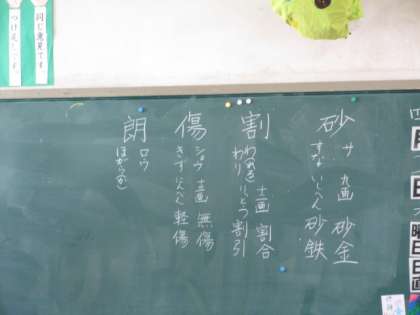 同じ意見です
つけたしです
四
月
日
曜日
日直
砂 サ 九画 砂金
すな いしへん 砂鉄
割 わる 十二画 割合
わり りっとう 割引
傷 ショウ 十三画 無傷
きず にんべん 軽傷
朗 ロウ
ほがらか